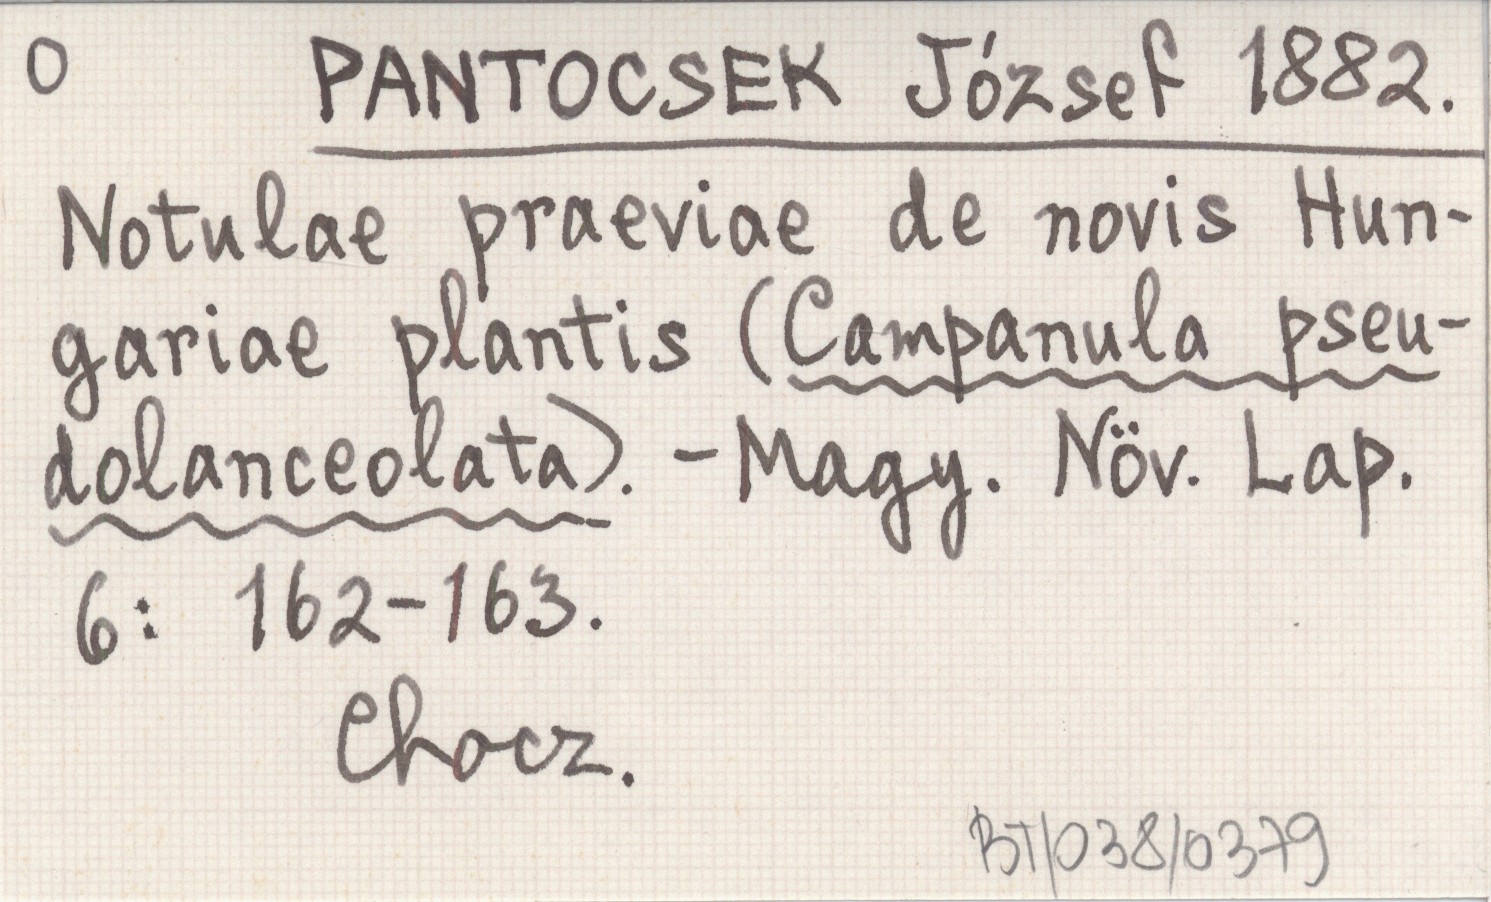 O PANTOCSEK József 1882.
Notulae praeviae de novis Hun-
gariae plantis (Campanula pseu-
dolanceolata). - Magy. Növ. Lap.
6: 162-163.
Chocz.
BT/038/0379